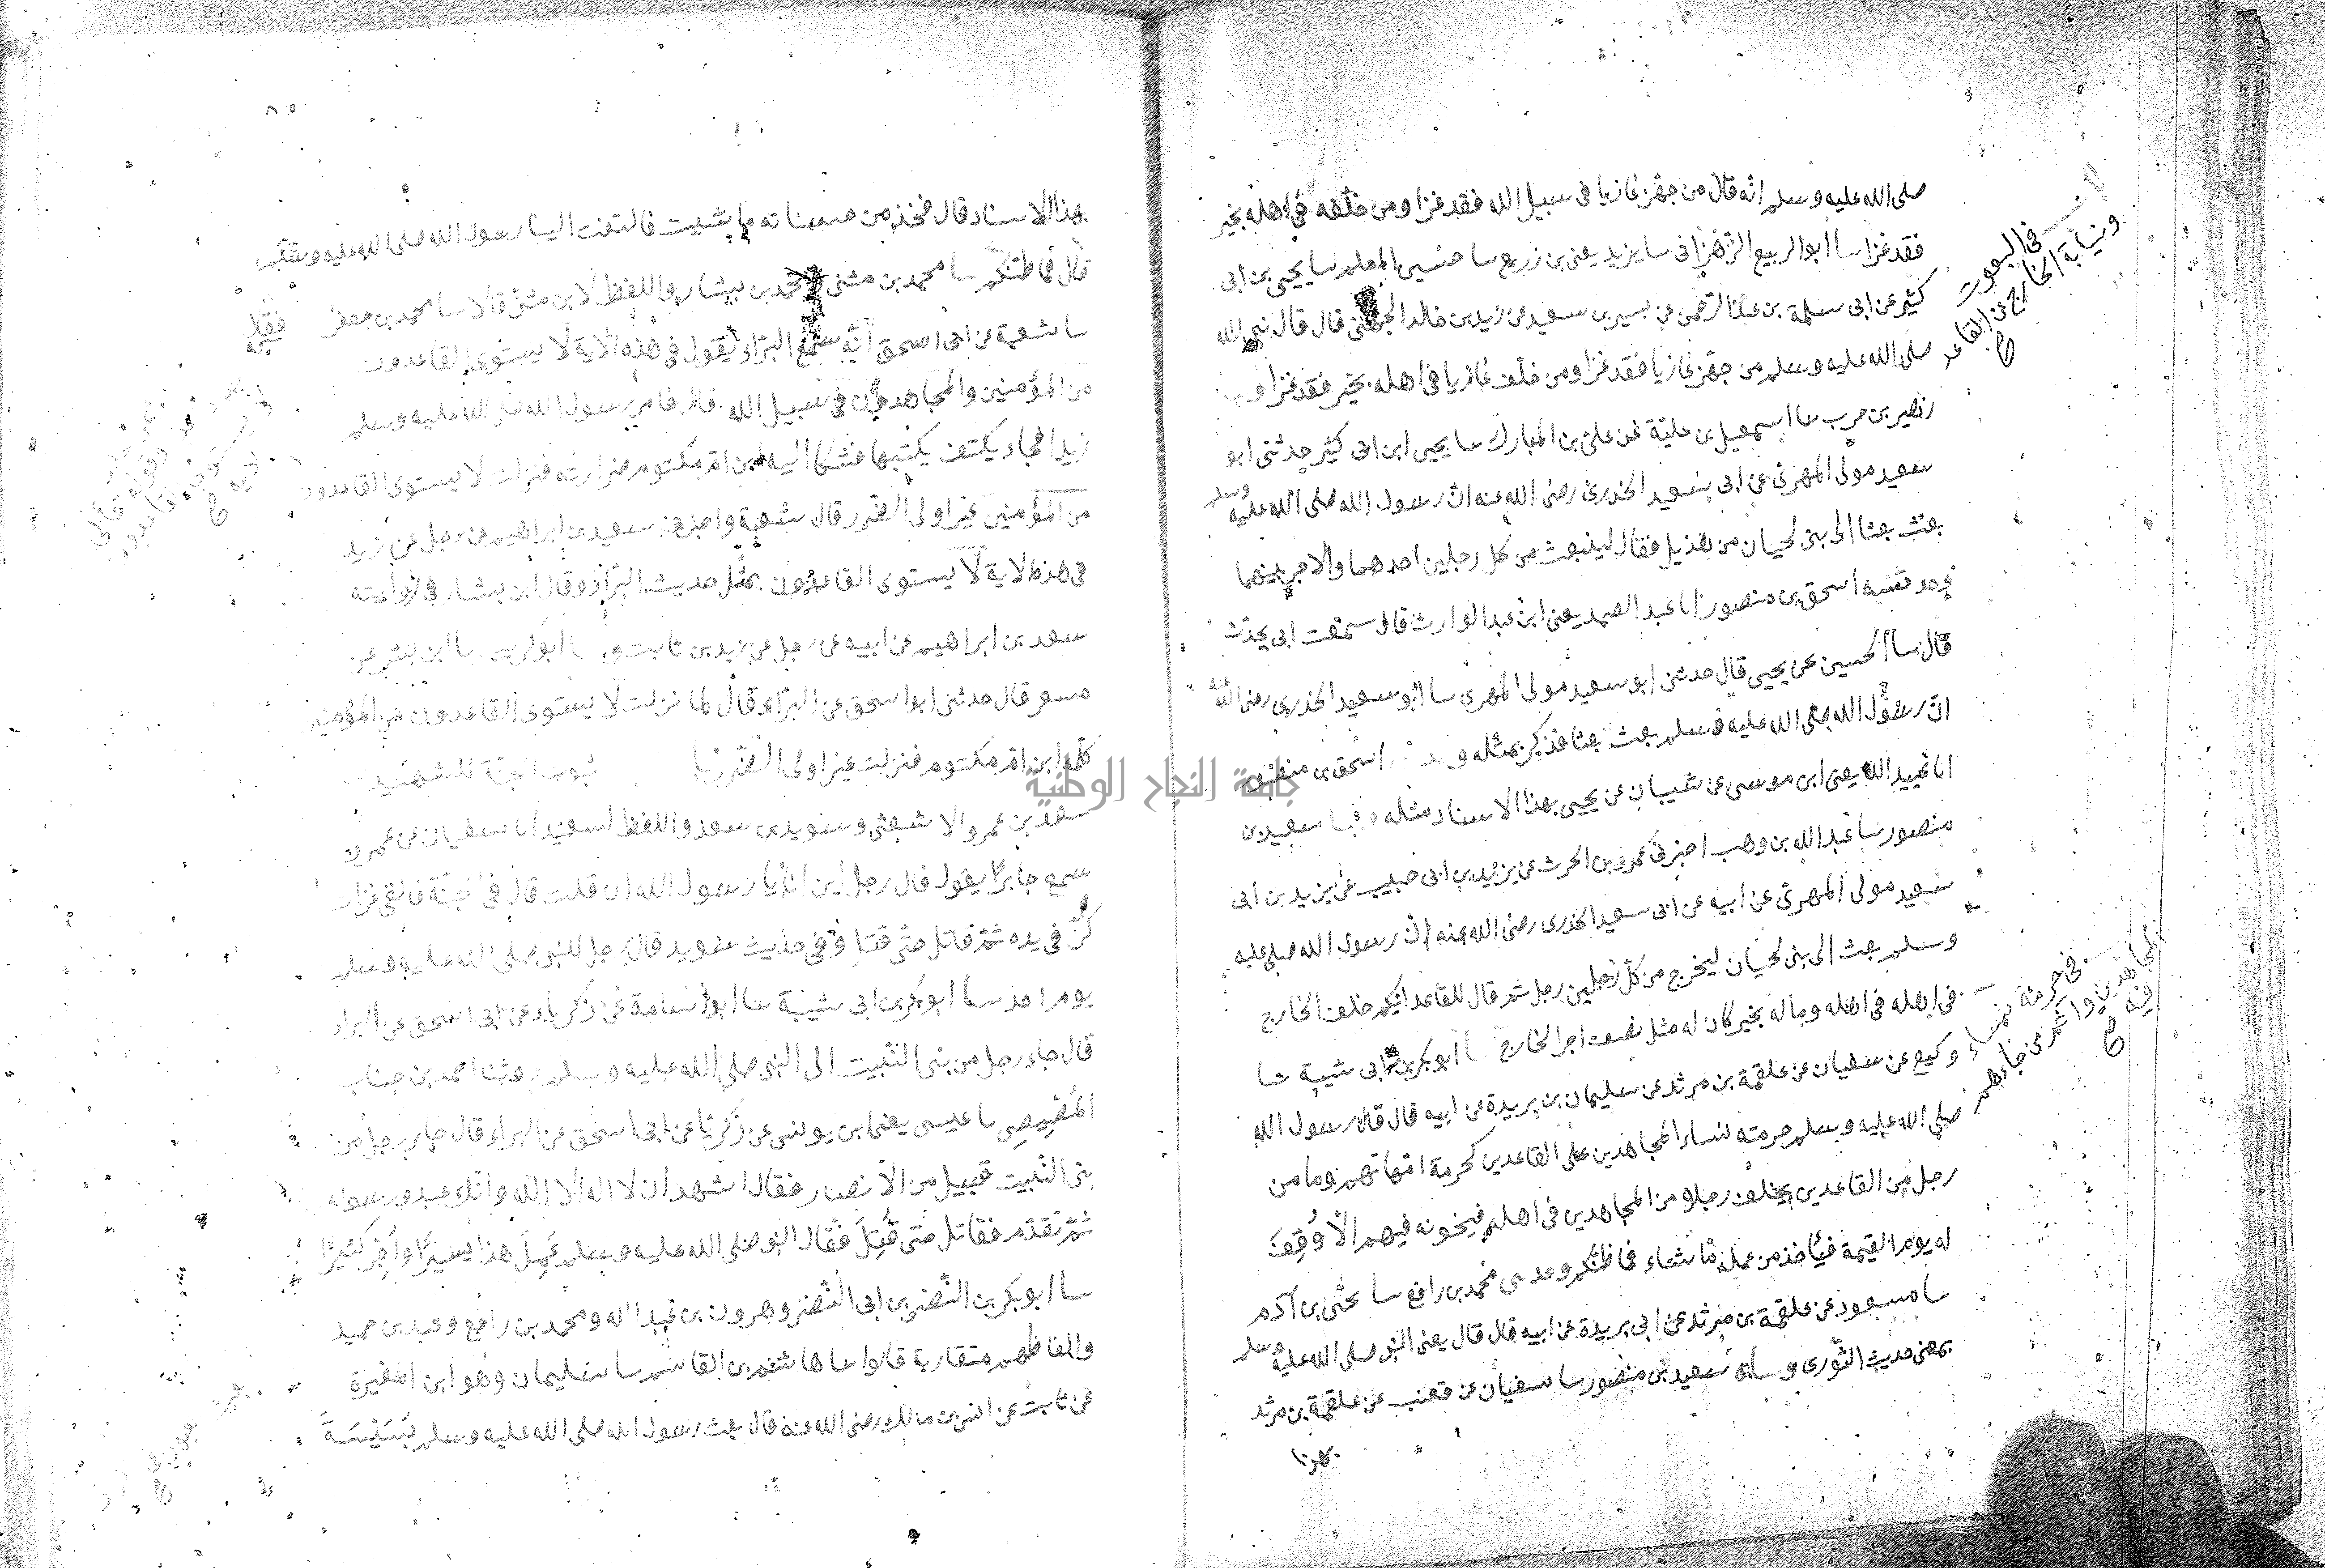 صلى الله عليه وسلم انه قال من جهز غازيا فى سبيل الله فقد غزا ومن خلفه فى اهله بخير
فقد غزا سا ابو الربيع الزهرانى سا يزيد يعنى بن زريع سا حسين المعلم سا يحيى بن ابى
كثير عن ابى سلمة بن عبد الرحمن عن بسر بن سعيد عن زيد بن خالد الجهنى قال قال نبى الله
صلى الله عليه وسلم من جهز غازيا فقد غزا ومن خلف غازيا فى اهله بخير فقد غزا و
زهير بن حرب سا اسمعيل بن علية عن على بن المبارك سا يحيى ابن ابى كثير حدثنى ابو
سعيد مولى المهرى عن ابى سعيد الخدرى رضى الله عنه ان رسول الله صلى الله عليه وسلم
بعث بعثا الى بنى لحيان من هذيل فقال لينبعث من كل رجلين احدهما والاجر بينهما
وحدثنيه اسحق بن منصور انا عبد الصمد يعنى ابن عبد الوارث قال سمعت ابى يحدث
قال سا الحسين عن يحيى قال حدثنى ابو سعيد مولى المهرى سا ابو سعيد الخدرى رضى الله عنه
ان رسول الله صلى الله عليه وسلم بعث بعثا فذكر بمثله اسحق بن منصور
انا عبيد الله يعنى ابن موسى عن شيبان عن يحيى بهذا الاسناد مثله سعيد بن
منصور سا عبد الله بن وهب اخبرنى عمرو بن الحرث عن يزيد بن ابى حبيب عن يزيد بن ابى
سعيد مولى المهرى عن ابيه عن ابى سعيد الخدرى رضى الله عنه ان رسول الله صلى عليه
وسلم بعث الى بنى لحيان ليخرج من كل رجلين رجل ثم قال للقاعد ايكم خلف الخارج
فى اهله فى اهله وماله بخير كان له مثل نصف اجر الخارج سا ابو بكر بن ابى شيبة سا
وكيع عن سفيان عن علقمة بن مرثد عن سليمان بن بريدة عن ابيه قال قال رسول الله
صلى الله عليه وسلم حرمته نساء المجاهدين على القاعدين كحرمة امهاتهم وما من
رجل من القاعدين يخلف رجلا من المجاهدين فى اهله فيخونه فيهم الا وُقِفَ
له يوم القيمة فيأخذ من عمله ما شاء فما ظنكم وحدسى محمد بن رافع سا يحيى بن آدم
سا مسعود عن علقمة بن مرثد عن ابى بريدة عن ابيه قال قال يعنى النبى صلى الله عليه وسلم
بمعنى حديث الثورى و سعيد بن منصور سا سفيان عن قعنب عن علقمة بن مرثد
بهذا
فى البعوث
ونيابة الخارج عن القاعد
فى حرمة نساء
المجاهدين واثم من خانهم
فيه
بهذا الاسناد قال فخذ من حسناته ما شيت فالتفت الينا رسول الله صلى الله عليه وسلم
فقال
قال فما ظنكم سا محمد بن مثنى ومحمد بن بشار واللفظ لابن مثنى قالا سا محمد بن جعفر
سا شعبة عن ابى اسحق انه سمع البراء يقول فى هذه الاية لا يستوى القاعدون
من المؤمنين والمجاهدون فى سبيل الله قال فامر رسول الله صلى الله عليه وسلم
زيدا فجاء بكتف يكتبها فشكا اليه ابن ام مكتوم ضرارته فنزلت لا يستوى القاعدون
من المؤمنين غير اولى الضرر قال شعبة واخبرنى سعد بن ابراهيم عن رجل عن زيد
فى هذه الاية لا يستوى القاعدون بمثل حديث البراء وقال ابن بشار فى روايته
سعد بن ابراهيم عن ابيه عن رجل عن زيد بن ثابت و سا ابو كريب سا ابن بشر عن
مسعر قال حدثنى ابو اسحق عن البراء قال لما نزلت لا يستوى القاعدون من المؤمنين
كلمه ابن ام مكتوم فنزلت غير اولى الضرر ثبوت الجنة للشهيد
سعيد بن عمرو الاشعثى وسويد بن سعيد واللفظ لسعيد انا سفيان عن عمرو
سمع جابرا يقول قال رجل اين انا يا رسول الله ان قلت قال فى الجنة فالقى تمرات
كنّ فى يده ثم قاتل حتى قتل وفى حديث سويد قال رجل للنبى صلى الله عليه وسلم
يوم احد سا ابو بكر بن ابى شيبة سا ابو اسامة عن زكرياء عن ابى اسحق عن البراء
قال جاء رجل من بنى النبيت الى النبى صلى الله عليه وسلم وثنا احمد بن جناب
المصيصى سا عيسى يعنى ابن يونس عن زكريا عن ابى اسحق عن البراء قال جاء رجل من
بنى النبيت قبيل من الانصار فقال اشهد ان لا اله الا الله وانك عبده ورسوله
ثم تقدم فقاتل حتى قُتِلَ فقال النبى صلى الله عليه وسلم عَمِلَ هذا يسيرًا واُجِرَ كثيرًا
سا ابو بكر بن النضر بن ابى النضر وهرون بن عبد الله ومحمد بن رافع وعبد بن حميد
والفاظهم متقاربة قالوا سا هاشم بن القاسم سا سليمان وهو ابن المغيرة
عن ثابت عن انس بن مالك رضى الله عنه قال بعث رسول الله صلى الله عليه وسلم بُسَيْسَةَ
قوله تعالى
لا يستوى القاعدون
الاية
جامعة النجاح الوطنية